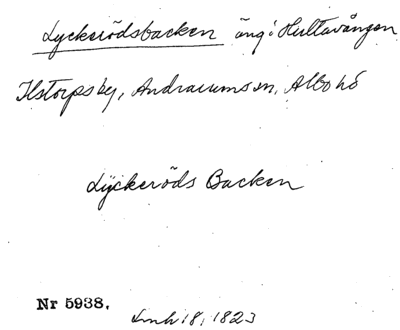 Lyckerödsbacken äng i Hultavången
Ilstorps by, Andrarums sn, Albo hd
Lÿckeröds Backen
Nr 5938.
Lmh 18, 1823